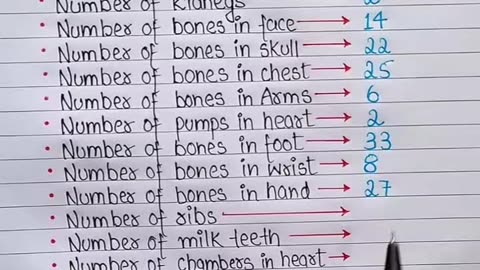 • Number of kidneys
• Number of bones in face → 14
• Number of bones in skull → 22
• Number of bones in chest → 25
• Number of bones in Arms → 6
• Number of pumps in heart → 2
• Number of bones in foot → 33
• Number of bones in wrist → 8
• Number of bones in hand → 27
• Number of ribs →
• Number of milk teeth →
• Number of chambers in heart →